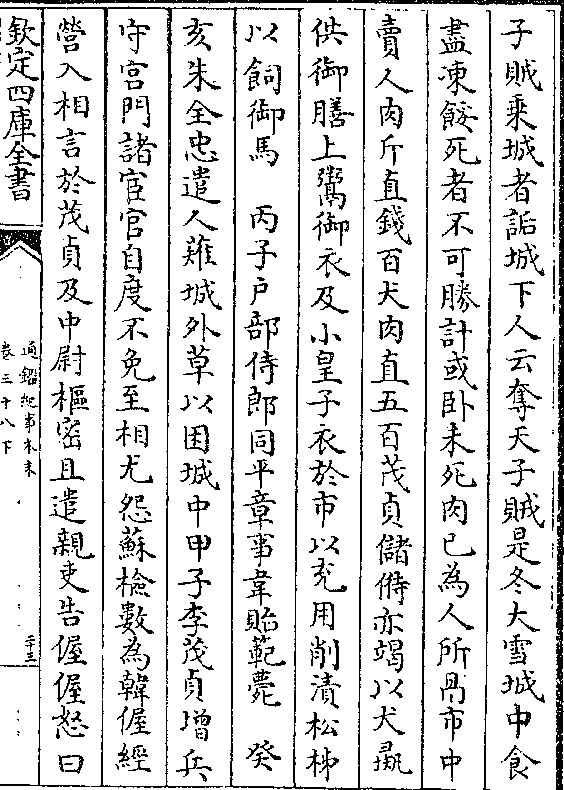 子賊乗城者詬城下人云奪天子賊是冬大雪城中食
盡凍餒死者不可勝計或卧未死肉已為人所冎市中
賣人肉斤直錢百犬肉直五百茂貞儲偫亦竭以犬彘
供御膳上鬻御衣及小皇子衣於市以充用削漬松柹
以飼御馬　丙子戸部侍郎同平章事韋貽範薨　癸
亥朱全忠遣人薙城外草以困城中甲子李茂貞増兵
守宫門諸宦官自度不免至相尤怨蘇檢數為韓偓經
營入相言於茂貞及中尉樞密且遣親吏告偓偓怒曰
欽定四庫全書
通鑑紀事本末
卷三十八下
二十三